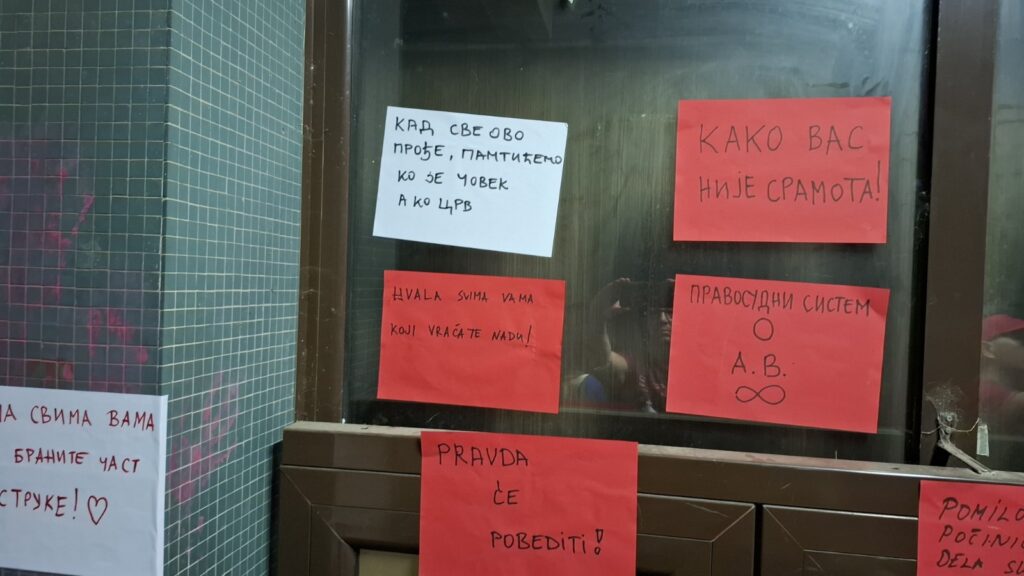 КАД СВЕ ОВО
ПРОЂЕ, ПАМТИЋЕМО
КО ЈЕ ЧОВЕК
А КО ЦРВ
КАКО ВАС
НИЈЕ СРАМОТА!
HVALA SVIMA VAMA
KOJI VRAĆATE NADU!
ПРАВОСУДНИ СИСТЕМ
O
А.В.
∞
СВИМА ВАМА
БРАНИТЕ ЧАСТ
СТРУКЕ! ♡
PRAVDA
ĆE
POBEDITI!
POČINI
DELA